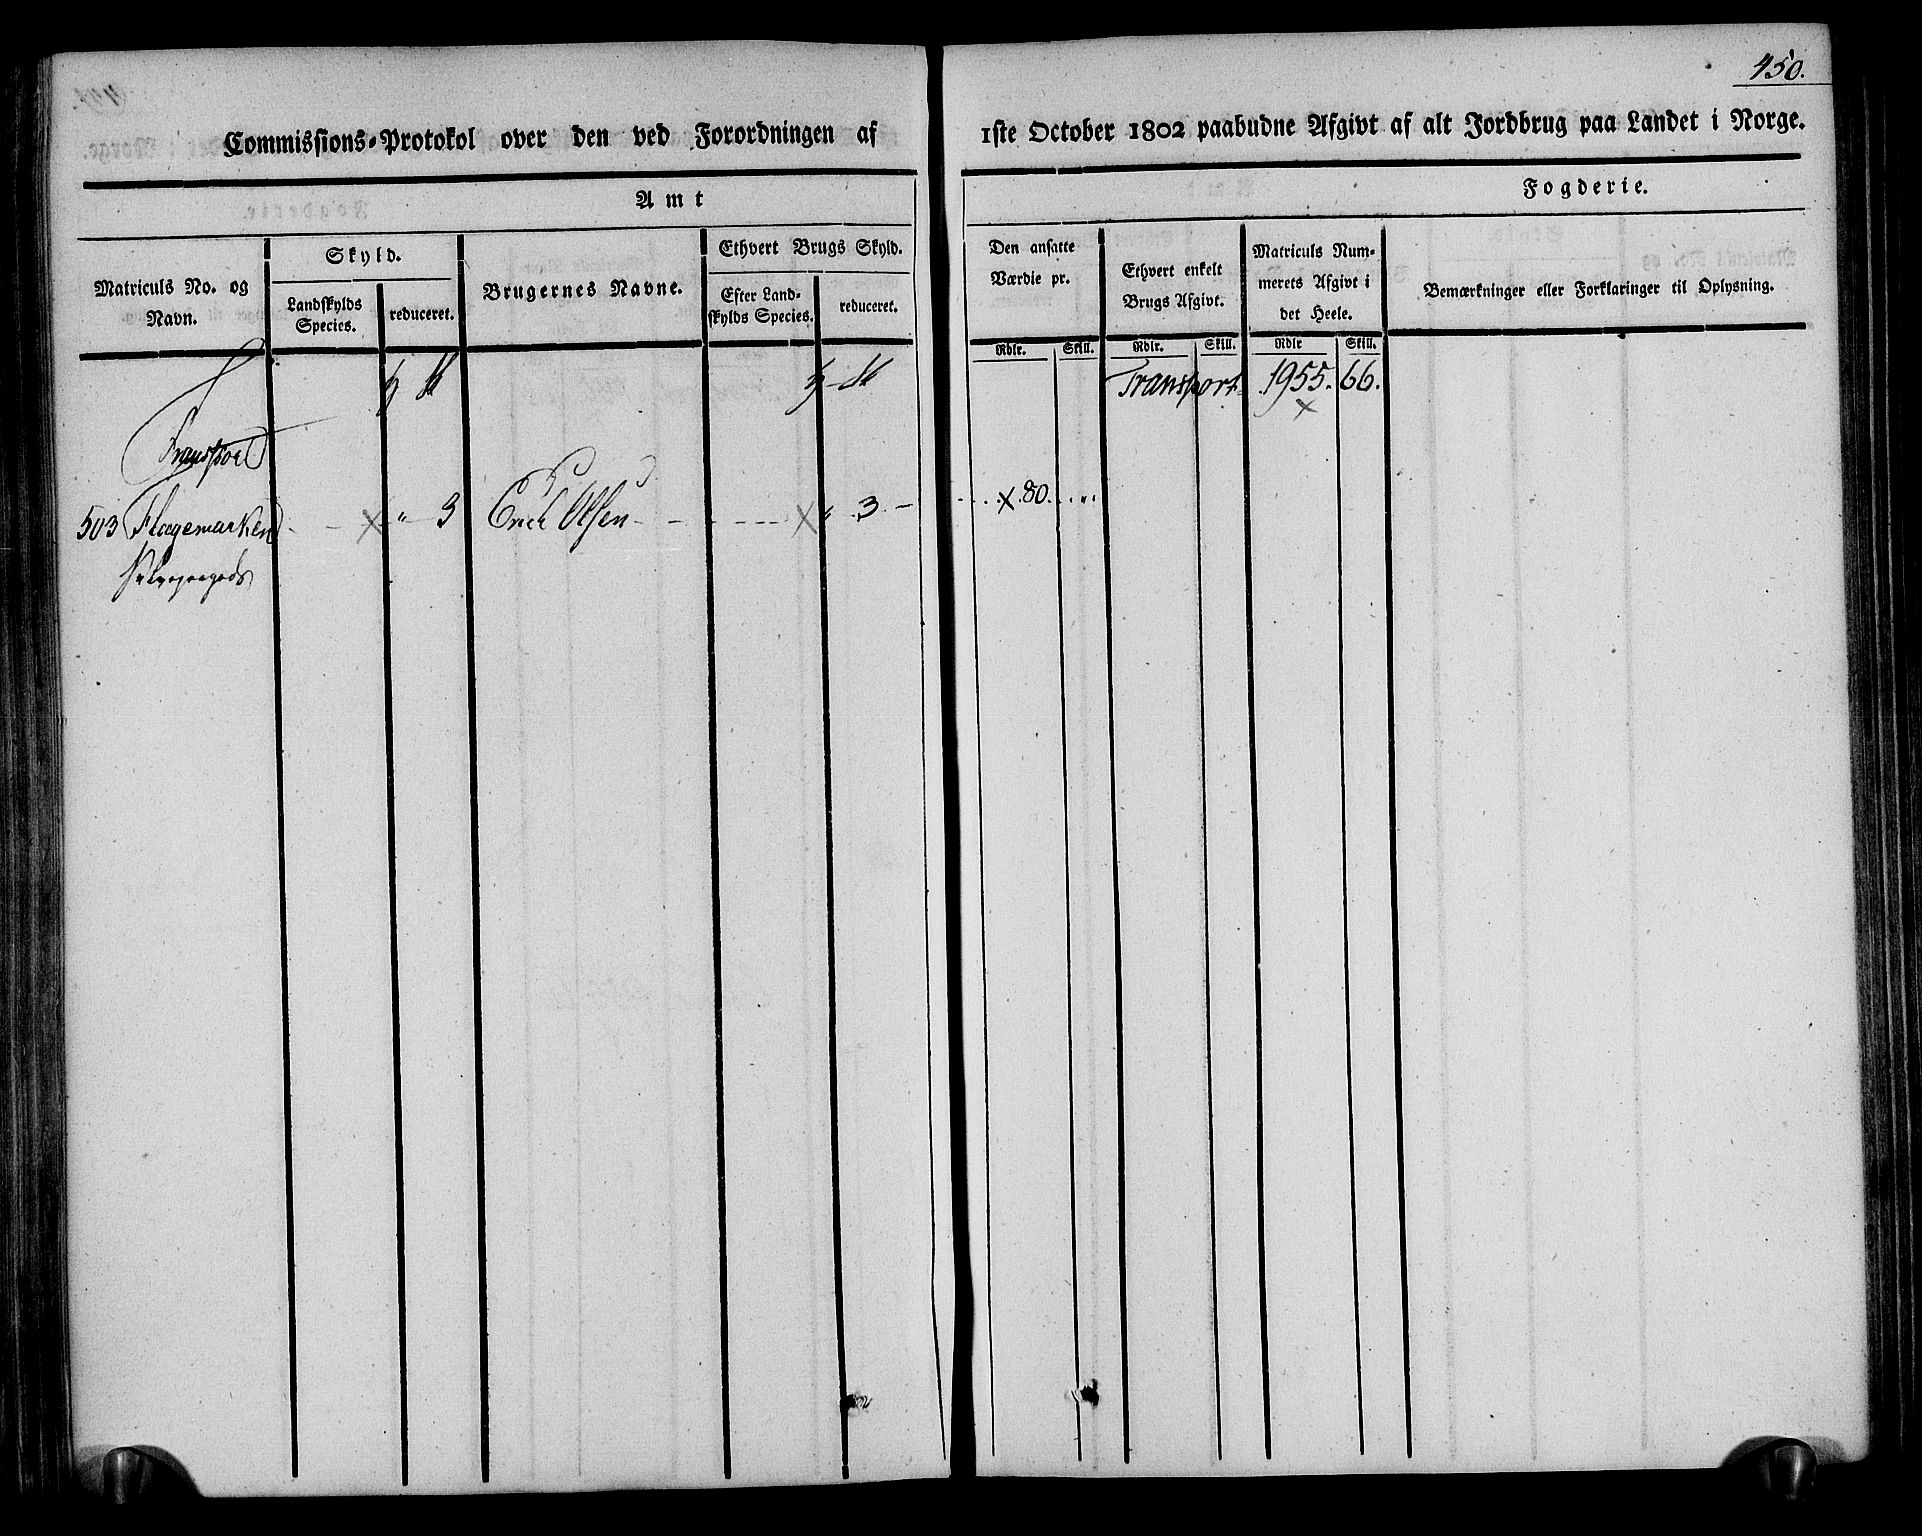 450.
Commissions-Protokol over den ved Forordningen af 1ste October 1802 paabudne Afgivt af alt Jordbrug paa Landet i Norge.
Amt
Fogderie.
Matriculs No. og Navn.
Skyld.
Landskylds Species.
reduceret.
Brugernes Navne.
Ethvert Brugs Skyld.
Efter Landskylds Species.
reduceret.
Den ansatte Værdie pr.
Rdlr. Skill.
Ethvert enkelt Brugs Afgivt.
Rdlr. Skill.
Matriculs Nummerets Afgivt i det Heele.
Rdlr Skill.
Bemærkninger eller Forklaringer til Oplysning.
Transport 1955. 66.
Transport
503 Flaagemarken - - " 3 Erich Olsen - - - " 3 - 80. "